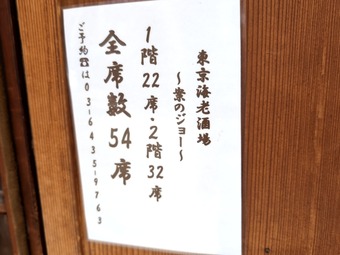 東京海老酒場
～業のジョー～
1階22席・2階32席
全席数54席
ご予約☎は03-6435-9763